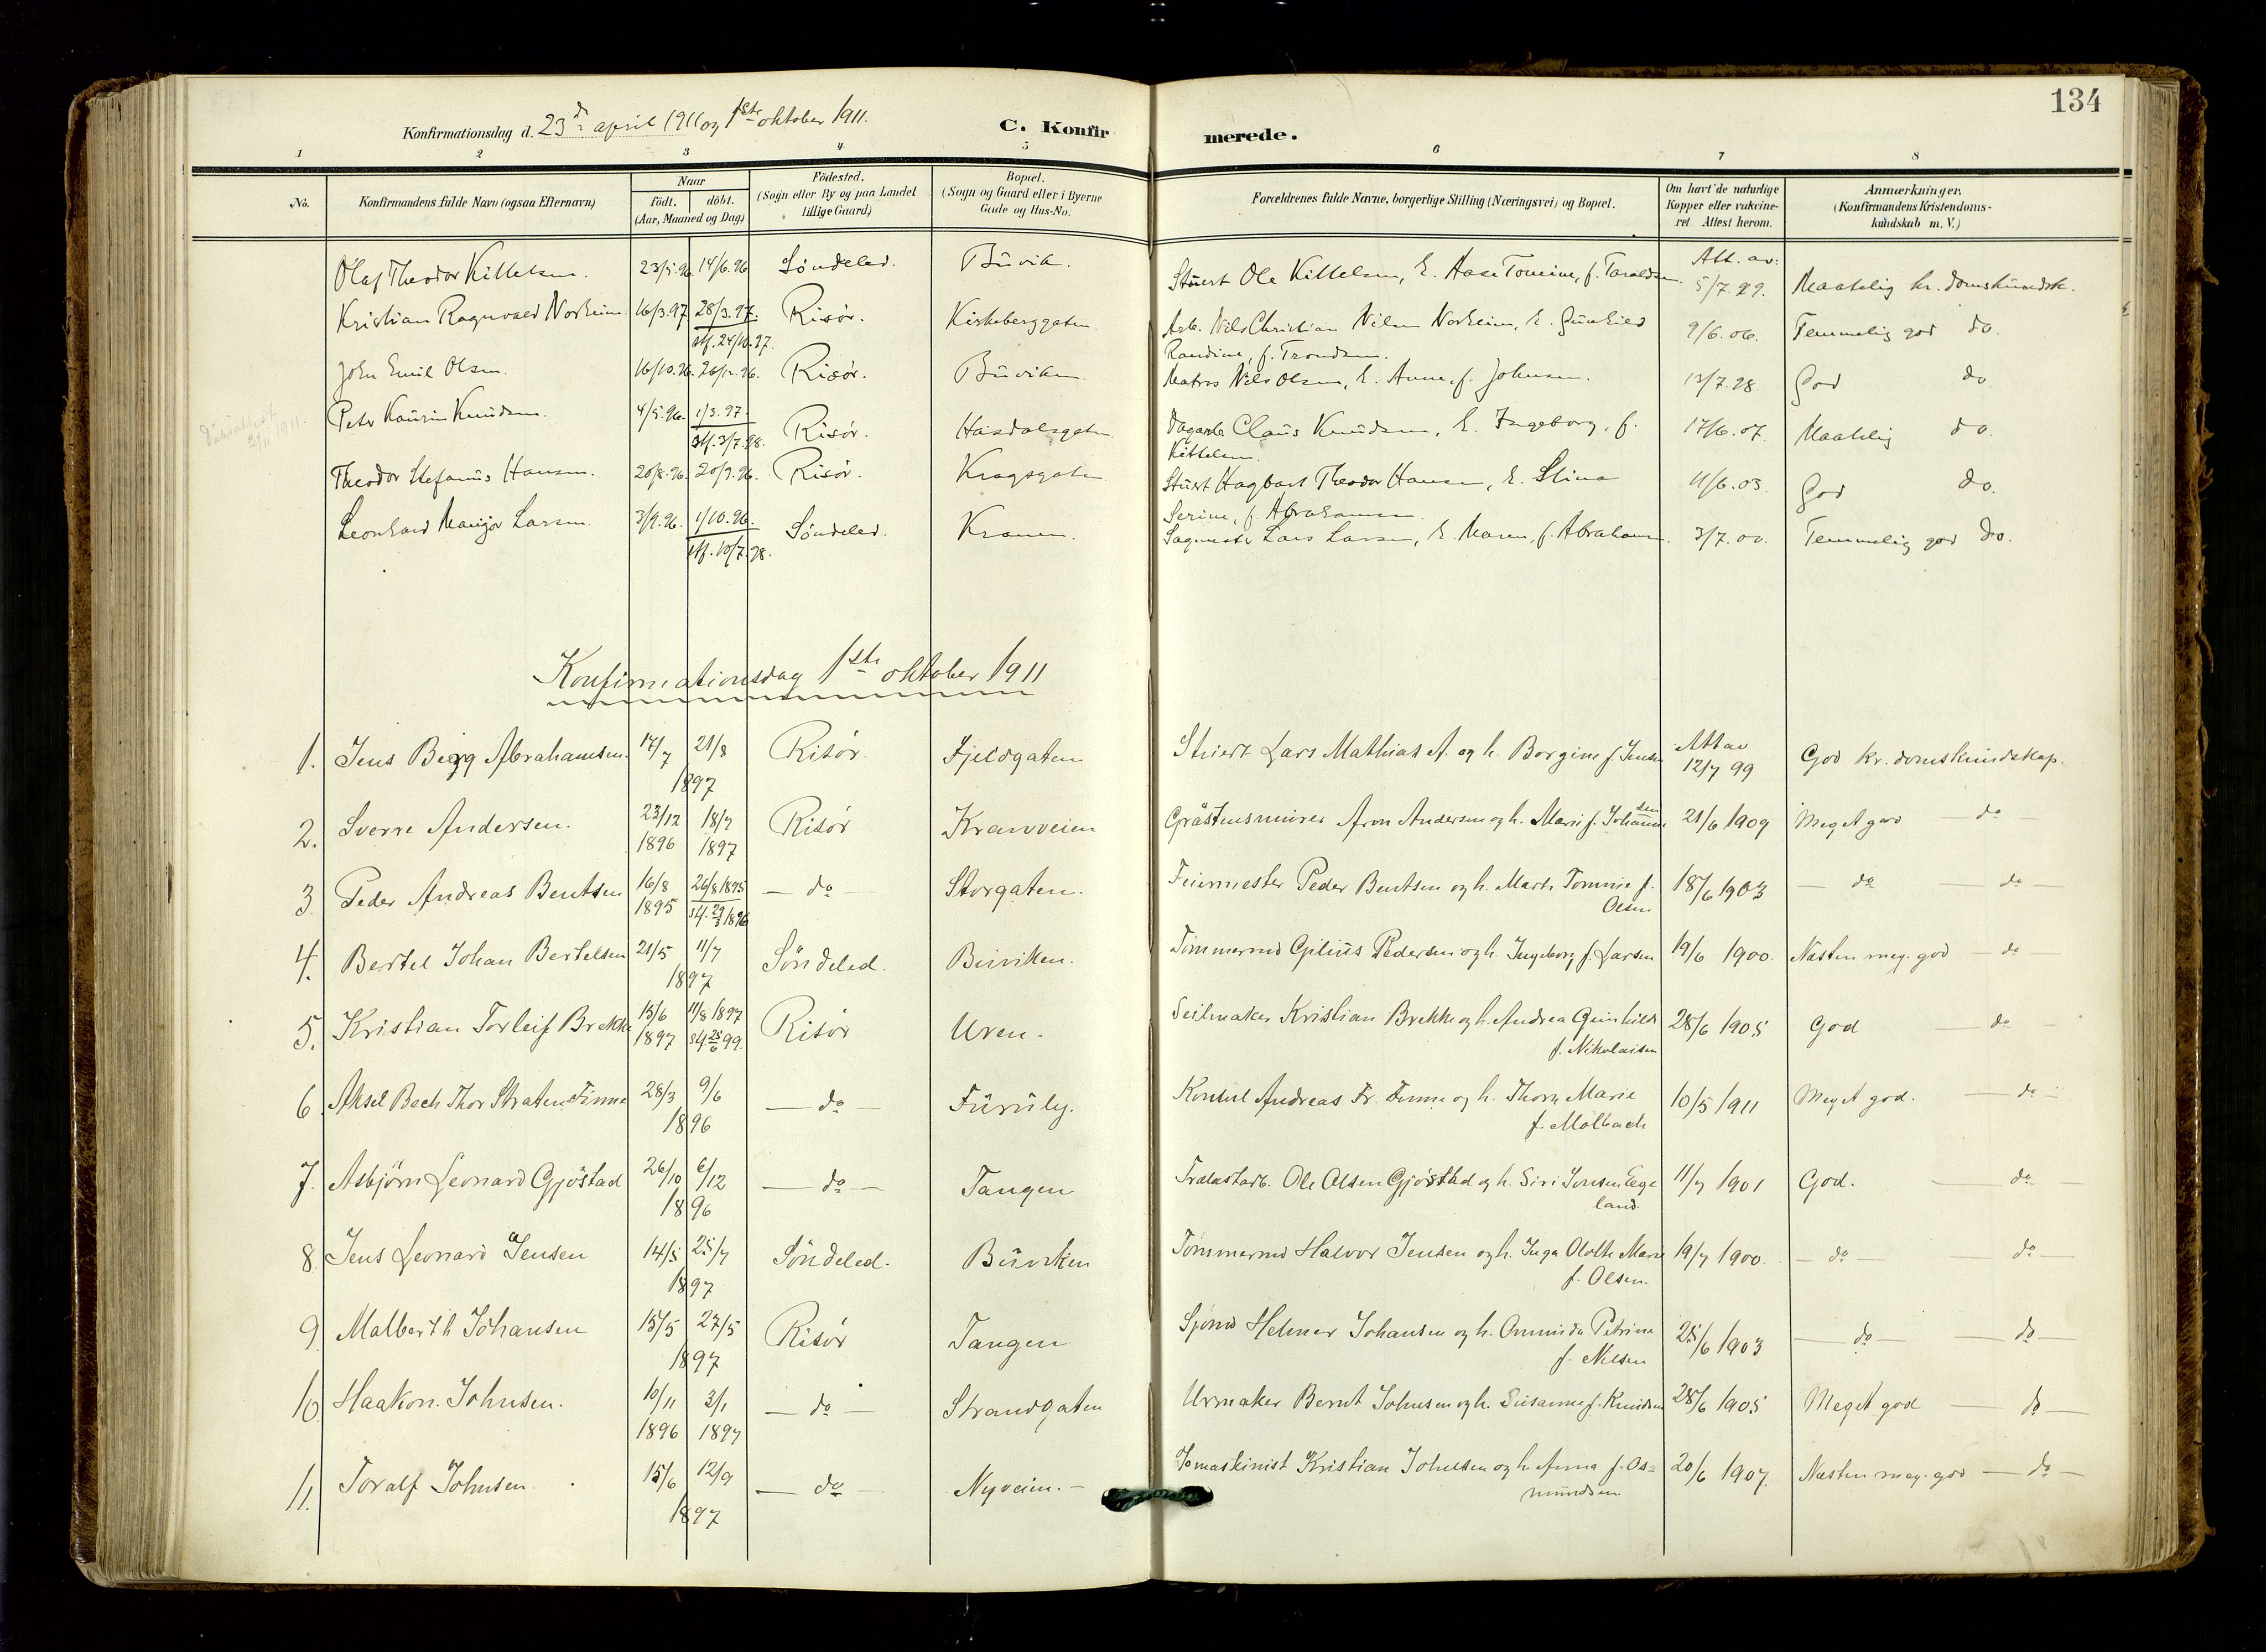 134
Konfirmationsdag d. 23de april 1911 og 1ste oktober 1911.
C. Konfirmerede.
1 2 3 4 5 6 7 8
No. Konfirmandens fulde Navn (ogsaa Efternavn) Naar födt. döbt. (Aar, Maaned og Dag) Födested. (Sogn eller By og paa Landet tillige Gaard) Bopæl. (Sogn og Gaard eller i Byerne Gade og Hus-No. Forældrenes fulde Navne, borgerlige Stilling (Næringsvei) og Bopæl. Om havt de naturlige Kopper eller vakcineret Attest herom. Anmærkninger. (Konfirmandens Kristendomskundskab m. V.)
Olaf Theodor Kittelsen. 23/5.96. 14/6.96 Söndeled. Buvik. Stuert Ole Kittelsen, h. Aase Tomine, f. Taraldsen. Att. av. 5/7.99. Maatelig kr.domskundsk.
Kristian Ragnvald Norheim 16/3.97 28/3.97. stf. 24/10.97. Risör. Kirkeberggaten Arb. Nils Christian Nilsen Norheim, h. Gunhild 9/6.06. Temmelig god do.
Randine, f. Trondsen.
John Emil Olsen. 16/10.96. 26/12.96. Risör. Buviken Matros Nils Olsen, h. Anne, f. Johnsen. 13/7.98. God do
Peter Kaurin Knudsen. 4/5.96. 1/3.97. stf. 3/7.98. Risör. Hasdalsgaten Dagarb. Claus Knudsen, h. Ingeborg, f. 17/6.07. Maatelig do.
Kittelsen.
Theodor Stefanus Hansen. 20/8.96. 20/9.96. Risör. Kragsgaten Stuert Hagbart Theodor Hansen, h. Stina 11/6.03. God do.
Serine, f. Abrahamsen.
Leonhard Manijor Larsen. 3/9.96. 1/10.96. stf. 10/7.98. Söndeled. Kranen. Sagmester Lars Larsen, h. Maren, f. Abrahamsen. 3/7.00. Temmelig god do.
1911.
Konfirmationsdag 1ste oktober 1911
1. Jens Begg Abrahamsen. 17/7 21/8 1897 Risör. Fjeldgaten Stuert Lars Mathias A. og h. Borgine f. Jensen Att av 12/7 99 God kr.domskundskap.
2. Sverre Andersen. 23/12 1896 18/7 1897 Risör Kranveien Gråstensmurer Aron Andersen og h. Marie f. Johannessen 21/6 1909 Meget god do
3. Peder Andreas Bentsen 16/8 1895 26/8 1895 stf. 29/3 1896 do Storgaten. Feiermester Peder Bentsen og h. Marte Tomine f. 18/6 1903 do do
Olsen
4. Bertel Johan Bertelsen 21/5 11/7 1897 Söndeled. Buviken. Tömmermd Gilius Pedersen og h. Ingeborg f. Larsen 19/6 1900. Næsten meg. god do
5. Kristian Torleif Brekke 15/6 1897 11/8 1897 stf. 25/6 99. Risör Uren. Seilmaker Kristian Brekke og h. Andrea Gunhilde 28/6 1905 God do
f. Nikolaisen
6. Aksel Bech Thor Straten Finne 28/3 9/6 1896 do Furuly. Konsul Andreas Fr. Finne og h. Thora Marie 10/5 1911 Meget god. do
f. Molbach
7. Asbjörn Leonard Gjöstad 26/10 6/12 1896 do Tangen Trælastarb. Ole Olsen Gjöstad og h. Siri Jonsen Ege- 11/7 1901 God. do
land.
8. Jens Leonard Jensen 14/5 25/7 1897 Söndeled. Buviken Tömmermd Halvor Jensen og h. Inga Olalte Marie 19/7 1900. do do
f. Olsen.
9. Malberth Johansen 15/5 27/5 1897 Risör Tangen Sjömd Helmer Johansen og h. Ommunda Petrine 25/6 1903 do do
f. Nilsen
10. Haakon Johnsen. 10/11 1896 3/1 1897 do Strandgaten Urmaker Bernt Johnsen og h. Susanne f. Knudsen 28/6 1905 Meget god do
11. Toralf Johnsen 15/6 12/9 1897 do Nyveien. Jomaskinist Kristian Johnsen og h. Anna f. Os- 20/6 1907. Næsten meg. god do
mundsen